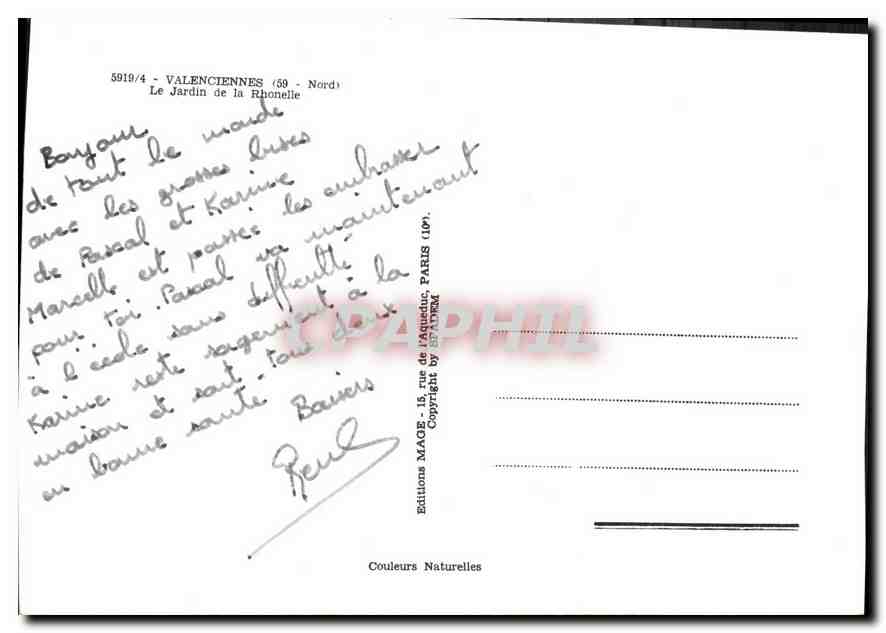 5919/4 - VALENCIENNES (59 - Nord)
Le Jardin de la Rhonelle
Bonjour
de tout le monde
avec les grosses bises
de Pascal et Karine
Marcelle est passée les embrasser
pour toi. Pascal va maintenant
à l'école sans difficulté
Karine reste sagement à la
maison et sont tous deux
en bonne santé.
Baisers
Editions MAGE - 15, rue de l'Aqueduc, PARIS (10e).
Copyright by SPADEM
CPAPHIL
Couleurs Naturelles